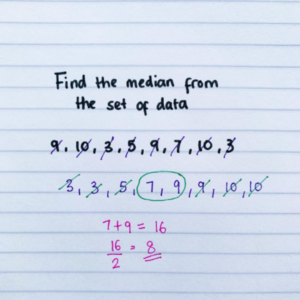 Find the median from
the set of data
9, 10, 3, 5, 9, 7, 10, 3
3, 3, 5, 7, 9, 9, 10, 10
7+9 = 16
16/2 = 8